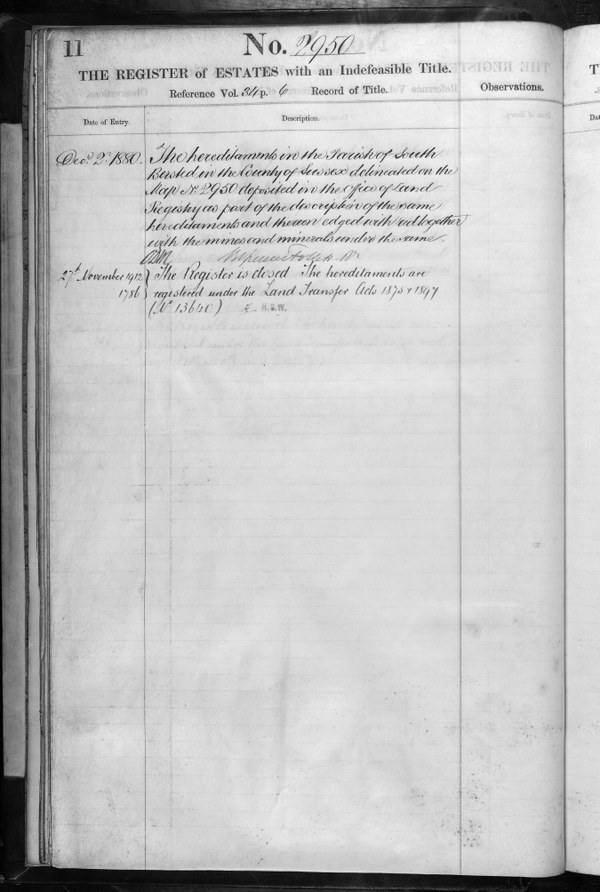 11
No. 2950
THE REGISTER of ESTATES with an Indefeasible Title.
Reference Vol. 34 p. 6 Record of Title.
Observations.
Date of Entry.
Description.
Decr. 2d. 1880.
The hereditaments in the Parish of South
Bersted in the County of Sussex delineated on the
Map No. 2950 deposited in the Office of Land
Registry as part of the description of the same
hereditaments and thereon edged with red together
with the mines and minerals under the same.
27th November 1912
1786
The Register is closed The hereditaments are
registered under the Land Transfer Acts 1875 & 1897
(No. 13640)